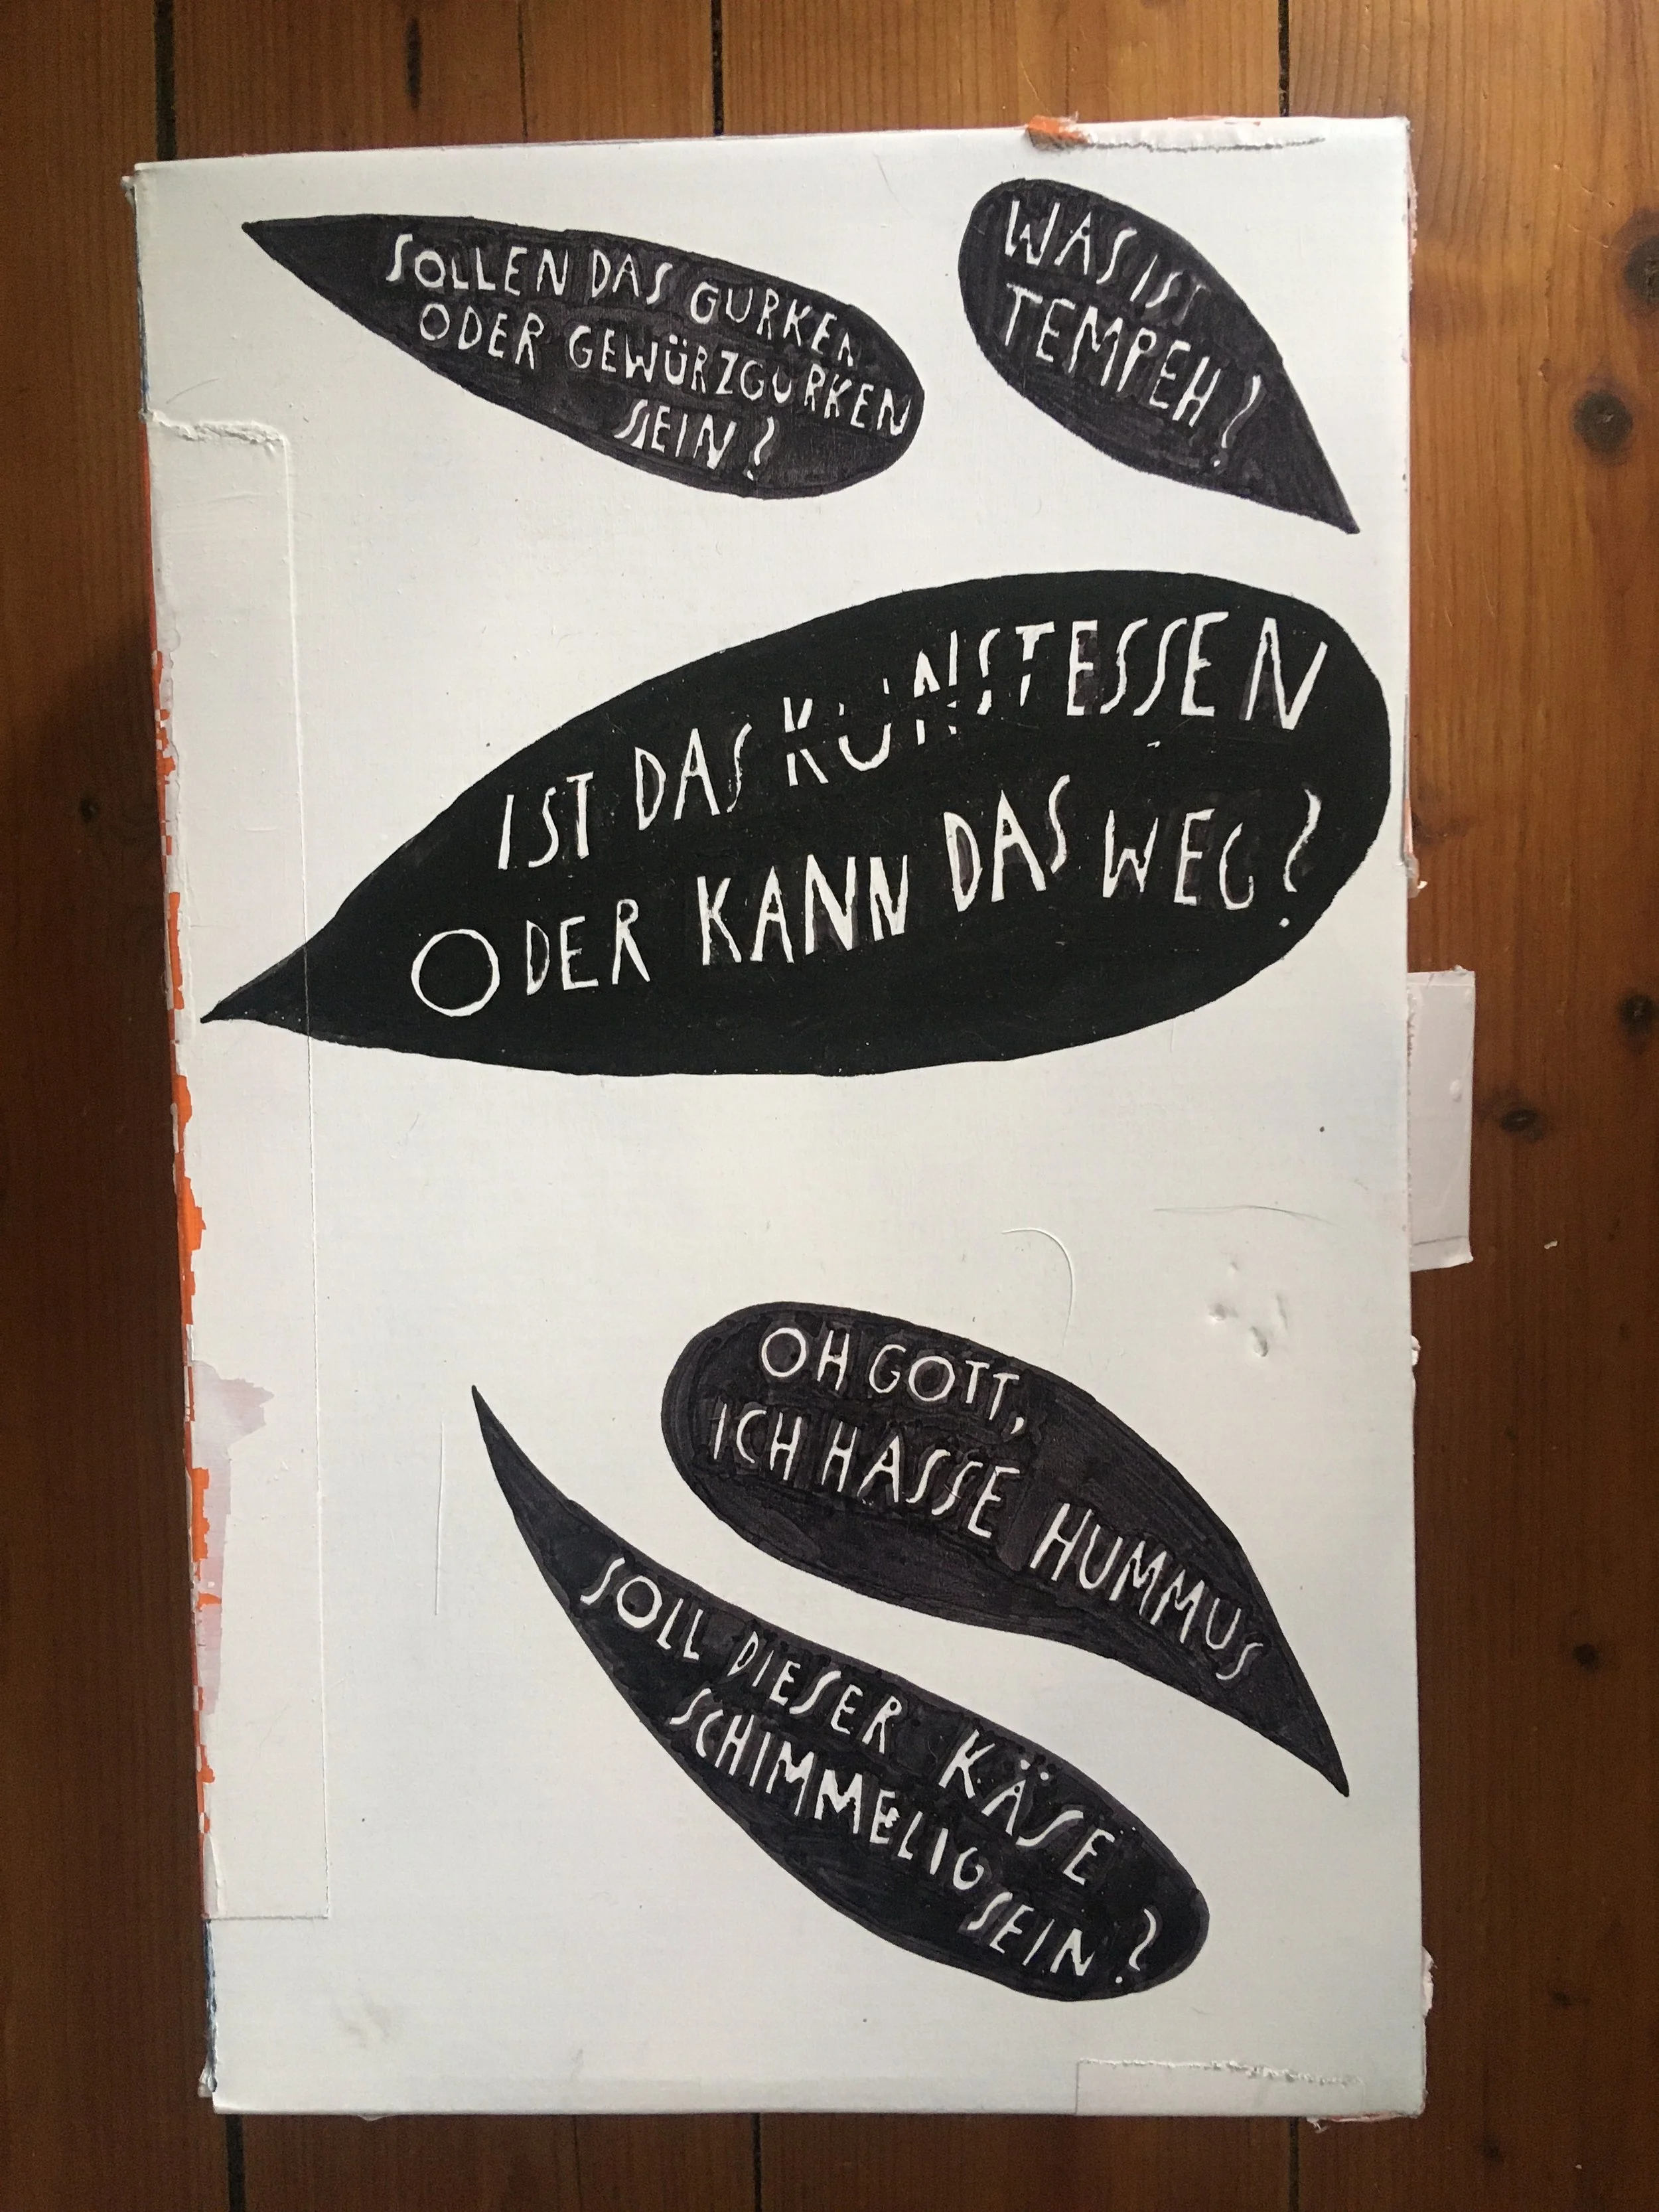 SOLLEN DAS GURKEN
ODER GEWÜRZGURKEN
SEIN?
WAS IST
TEMPEH?
IST DAS KUNSTESSEN
ODER KANN DAS WEG?
OH GOTT,
ICH HASSE HUMMUS
SOLL DIESER KÄSE
SCHIMMELIG SEIN?